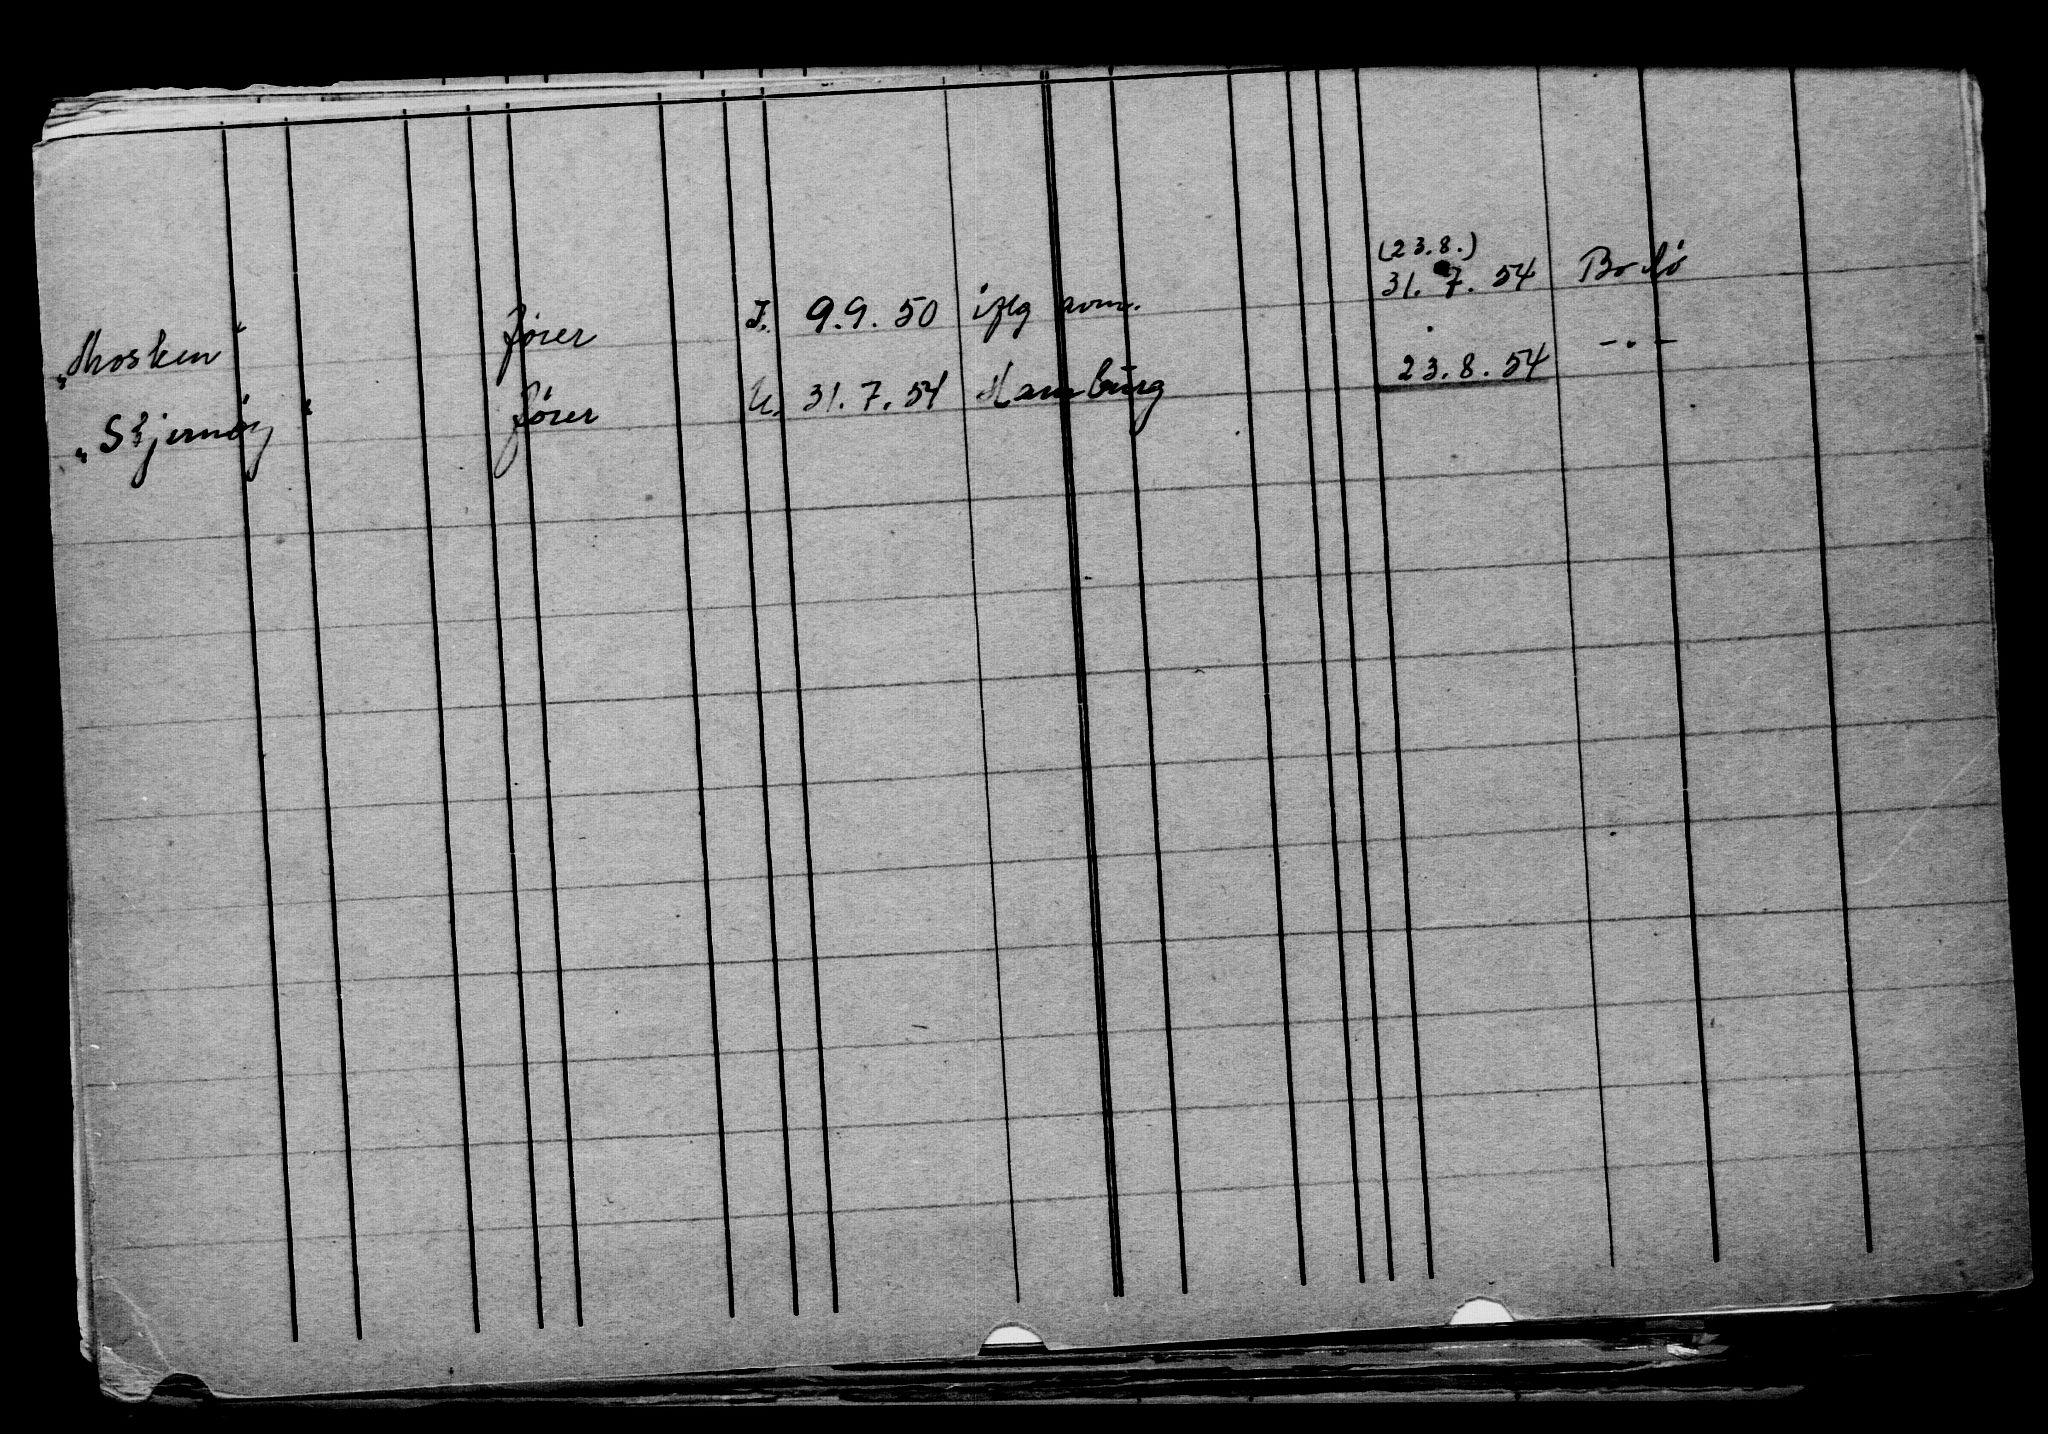 (23.8.)
„Mosken“ fører I. 9.9.50 iflg 31.7.54 Bodø
„Stjernøy“ fører U. 31.7.54 Hamburg 23.8.54 -.-